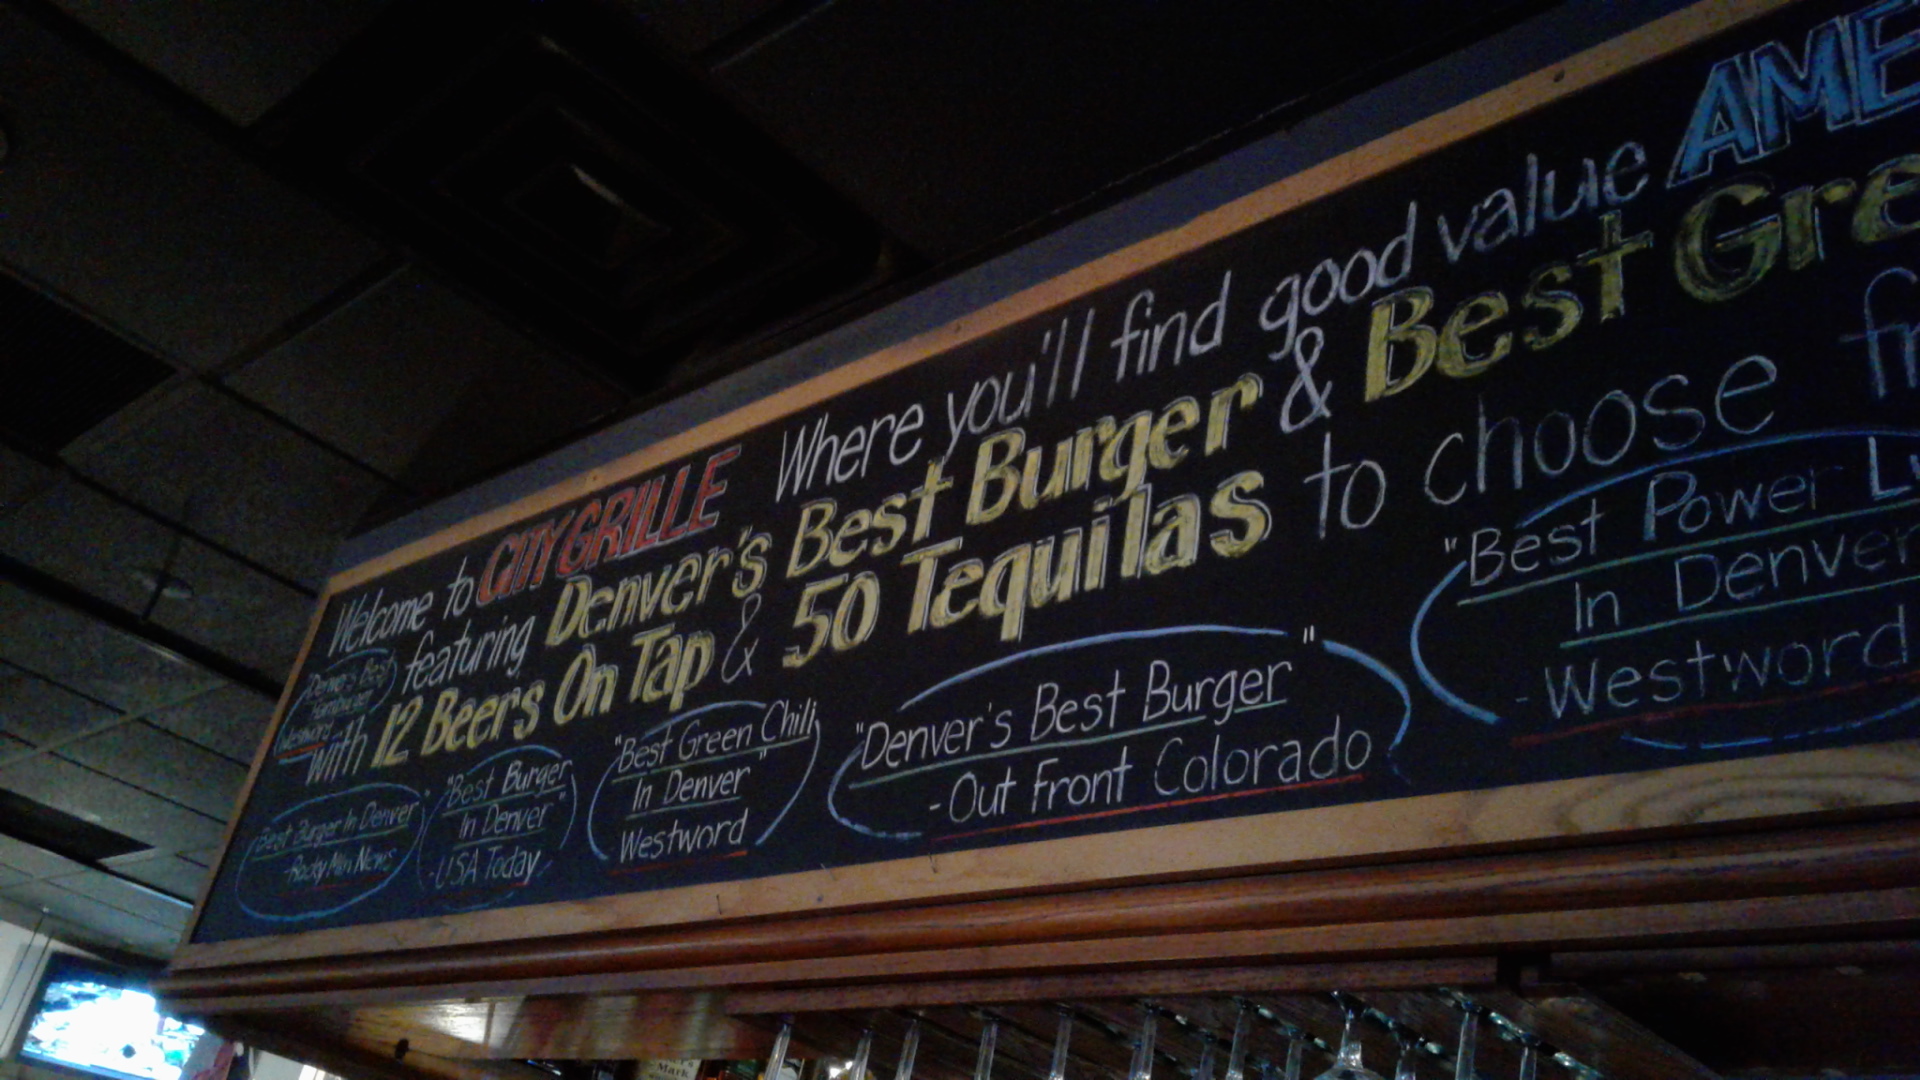 Welcome to CITY GRILLE Where you'll find good value AME
featuring Denver's Best Burger & Best Gre
with 12 Beers On Tap & 50 Tequilas to choose fr
"Denver's Best
Hamburger"
Westword
"Best Burger In Denver"
- Rocky Mtn News
"Best Burger
In Denver"
- USA Today
"Best Green Chili
In Denver"
Westword
"Denver's Best Burger"
- Out Front Colorado
"Best Power Lu
In Denver
- Westword
Mark